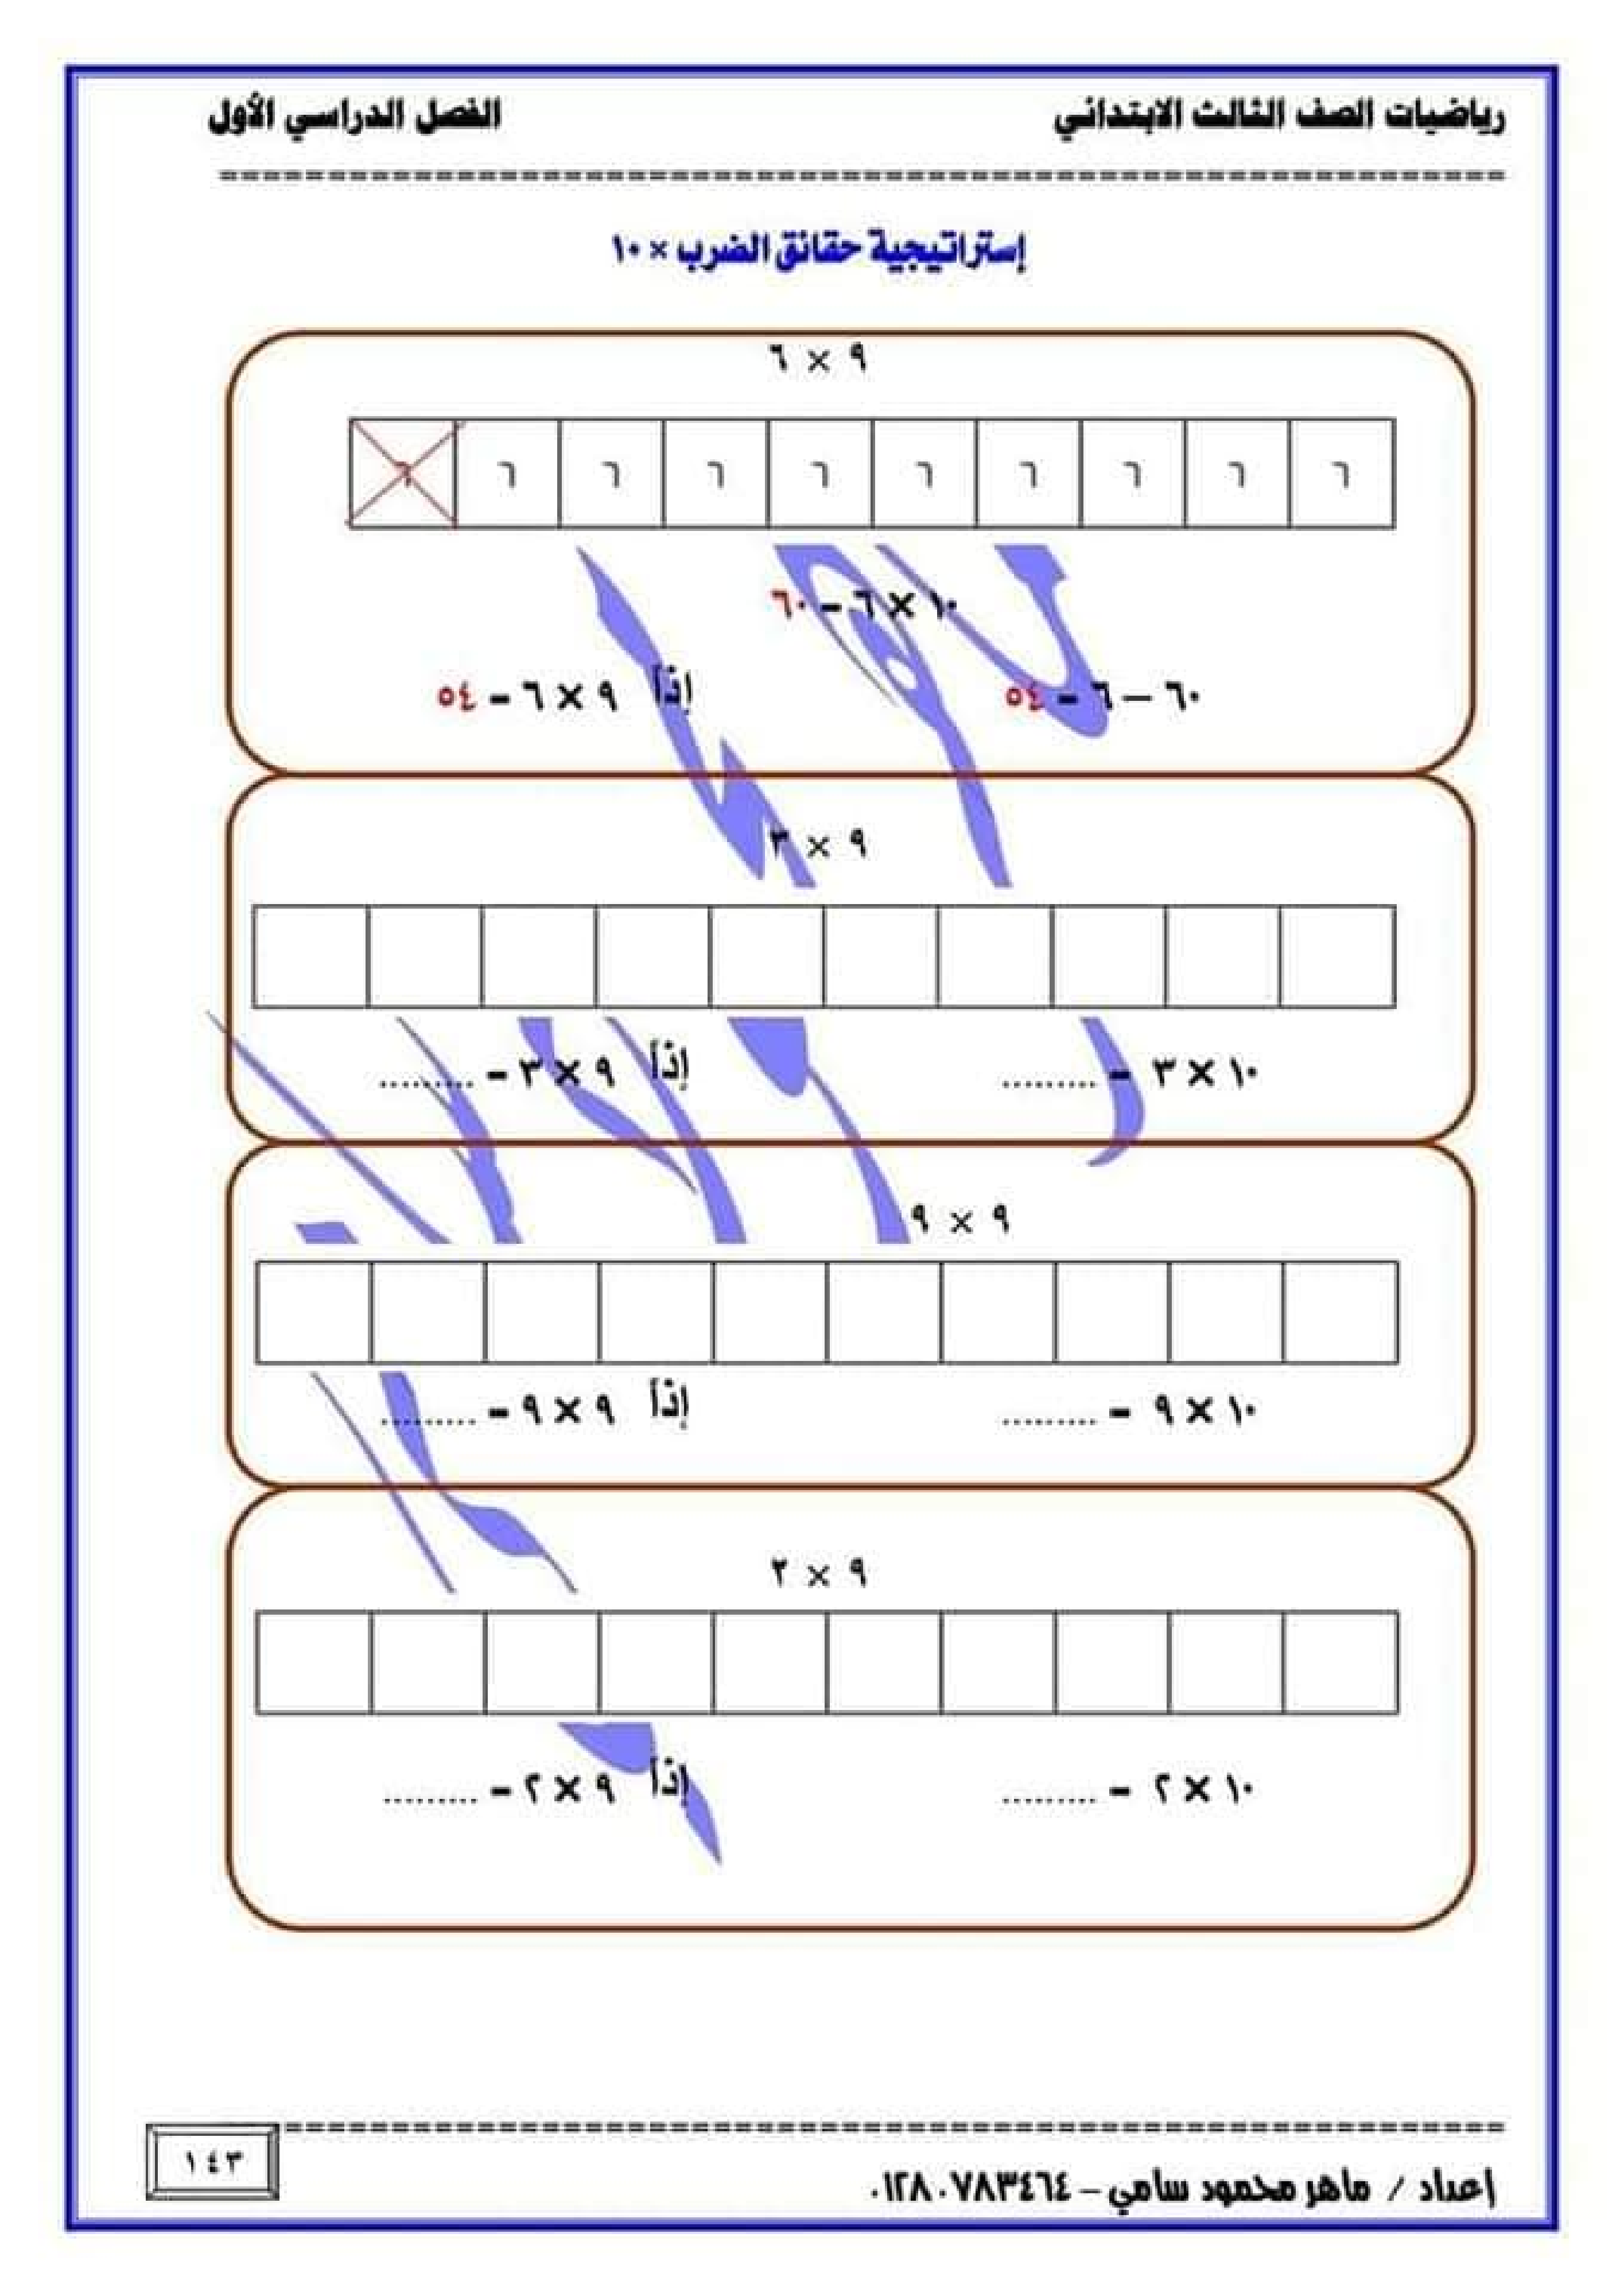 رياضيات الصف الثالث الابتدائي الفصل الدراسي الأول
إستراتيجية حقائق الضرب × ١٠
٩ × ٦
٦ ٦ ٦ ٦ ٦ ٦ ٦ ٦ ٦ ٦
١٠ × ٦ = ٦٠
٦٠ – ٦ = ٥٤ إذاً ٩ × ٦ = ٥٤
٩ × ٣
١٠ × ٣ = ......... إذاً ٩ × ٣ = .........
٩ × ٩
١٠ × ٩ = ......... إذاً ٩ × ٩ = .........
٩ × ٢
١٠ × ٢ = ......... إذاً ٩ × ٢ = .........
إعداد / ماهر محمود سامي – ٠١٢٨٠٧٨٣٤٦٤
١٤٣